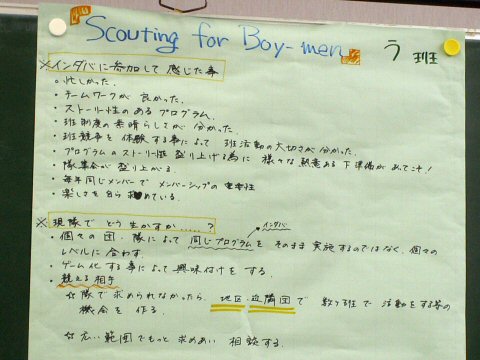 Scouting for Boy-men う班
※インダバに参加して感じた事
・忙しかった.
・チームワークが良かった.
・ストーリー性のあるプログラム.
・班制度の素晴らしさが分かった.
・班競争を体験する事によって班活動の大切さが分かった.
・プログラムのストーリー性盛り上げる為に様々な熱意ある下準備があってこそ!
・隊集会が盛り上がる
・毎年同じメンバーでメンバーシップの重要性
・楽しさを自ら求めている.
※現隊でどう生かすか.....?
インダバ
・個々の団・隊によって同じプログラムをそのまま実施するのではなく、個々の
レベルに合わす.
・ゲーム化する事によって興味付けをする.
・競える相手
☆隊で求められなかったら、地区・近隣団で数ヶ班で活動をする等の
機会を作る.
☆広い範囲でもっと求めあい相談する.